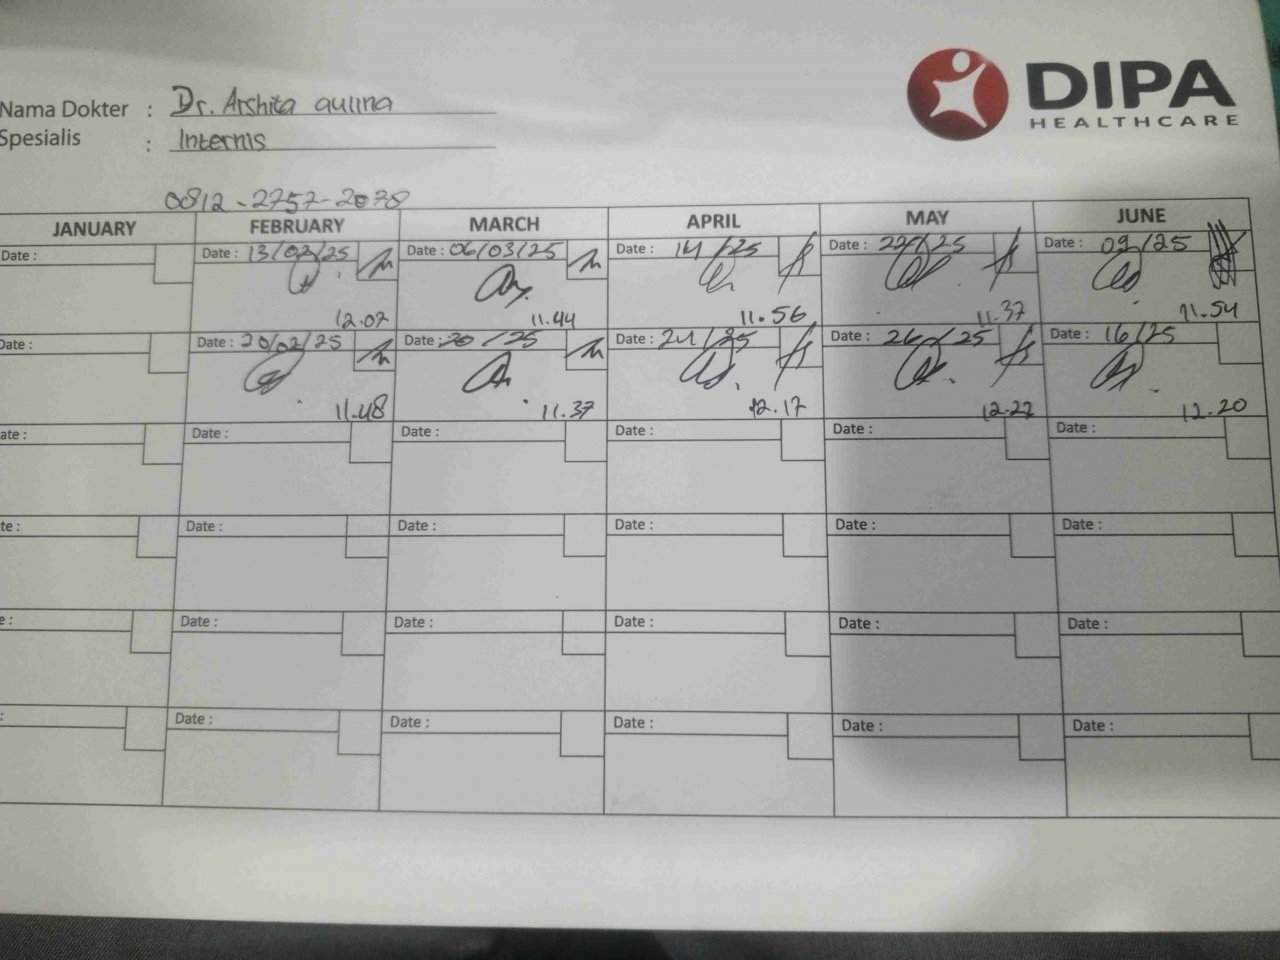 DIPA
HEALTHCARE
Nama Dokter : Dr. Arshita aulina
Spesialis : Internis
0812-2757-2078
JANUARY FEBRUARY MARCH APRIL MAY JUNE
Date : Date : 13/02/25 Date : 06/03/25 Date : 14 /25 Date : 22 /25 Date : 09 /25
12.07 11.44 11.56 11.37 11.54
Date : Date : 20/02/25 Date : 20 /25 Date : /25 Date : 26 /25 Date : 16/25
11.48 11.37 12.17 12.22 12.20
ate : Date : Date : Date : Date : Date :
te : Date : Date : Date : Date : Date :
e : Date : Date : Date : Date : Date :
: Date : Date : Date : Date : Date :